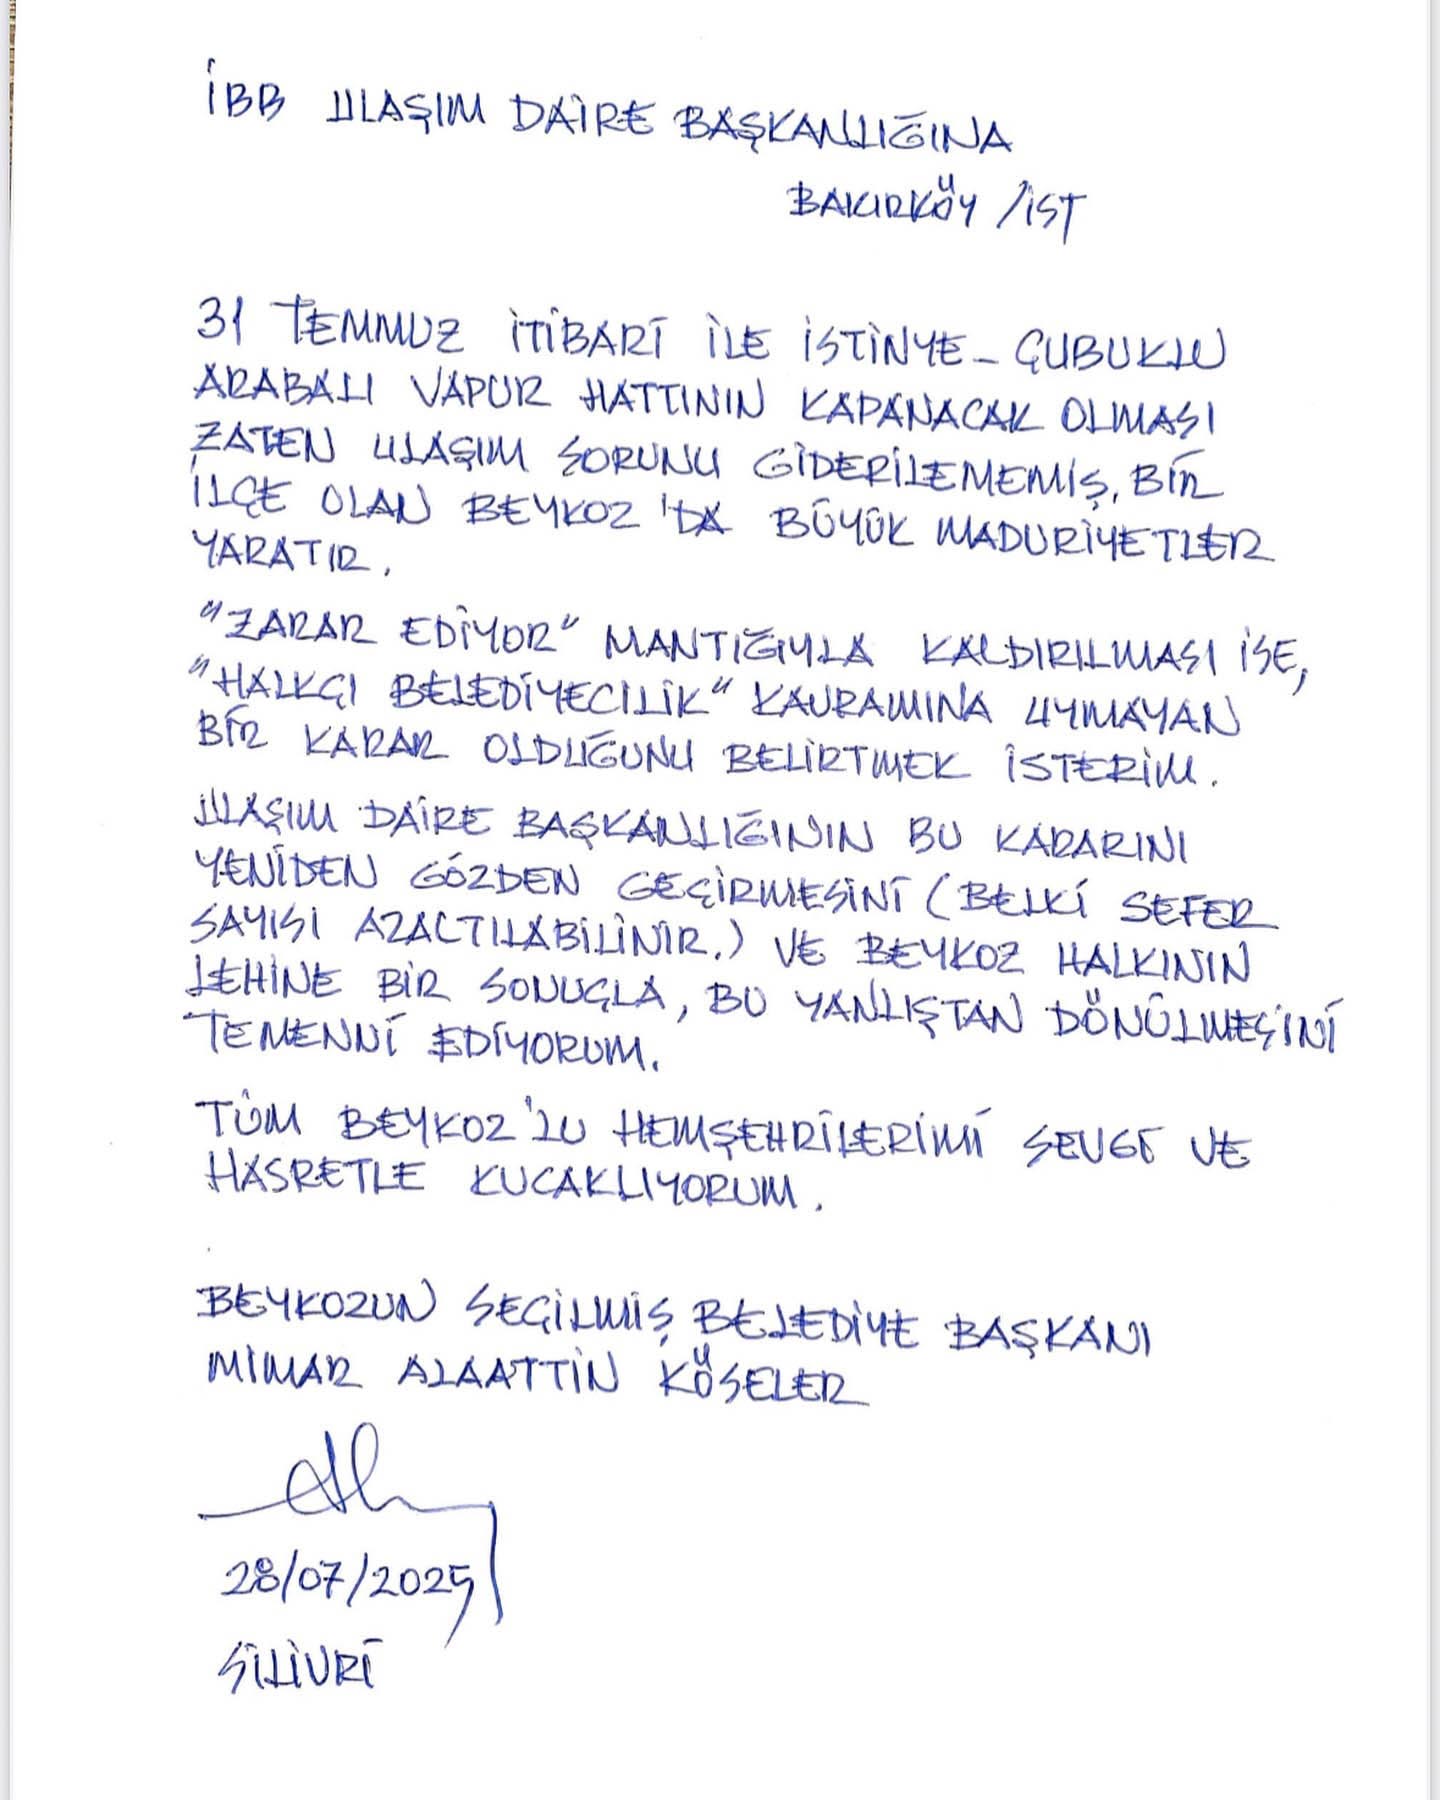 İBB ULAŞIM DAİRE BAŞKANLIĞINA
BAKIRKÖY /İST
31 TEMMUZ İTİBARİ İLE İSTİNYE_ ÇUBUKLU
ARABALI VAPUR HATTININ KAPANACAK OLMASI
ZATEN ULAŞIM SORUNU GİDERİLEMEMİŞ, BİR
İLÇE OLAN BEYKOZ 'DA BÜYÜK MADURİYETLER
YARATIR.
"ZARAR EDİYOR" MANTIĞIYLA KALDIRILMASI İSE,
"HALKÇI BELEDİYECİLİK" KAVRAMINA UYMAYAN
BİR KARAR OLDUĞUNU BELİRTMEK İSTERİM.
ULAŞIM DAİRE BAŞKANLIĞININ BU KARARINI
YENİDEN GÖZDEN GEÇİRMESİNİ (BELKİ SEFER
SAYISI AZALTILABİLİNİR.) VE BEYKOZ HALKININ
LEHİNE BİR SONUÇLA, BU YANLIŞTAN DÖNÜLMESİNİ
TEMENNİ EDİYORUM.
TÜM BEYKOZ'LU HEMŞEHRİLERİMİ SEVGİ VE
HASRETLE KUCAKLIYORUM.
BEYKOZUN SEÇİLMİŞ BELEDİYE BAŞKANI
MİMAR ALAATTİN KÖSELER
28/07/2025
SİLİVRİ